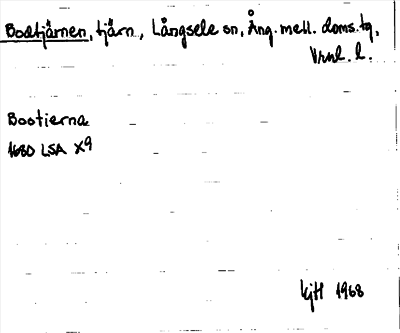 Bodtjärnen, tjärn, Långsele sn, Ång. mell. doms.tg,
Vrnl. l.
Bootierna
1680 LSA X9
KjH 1968